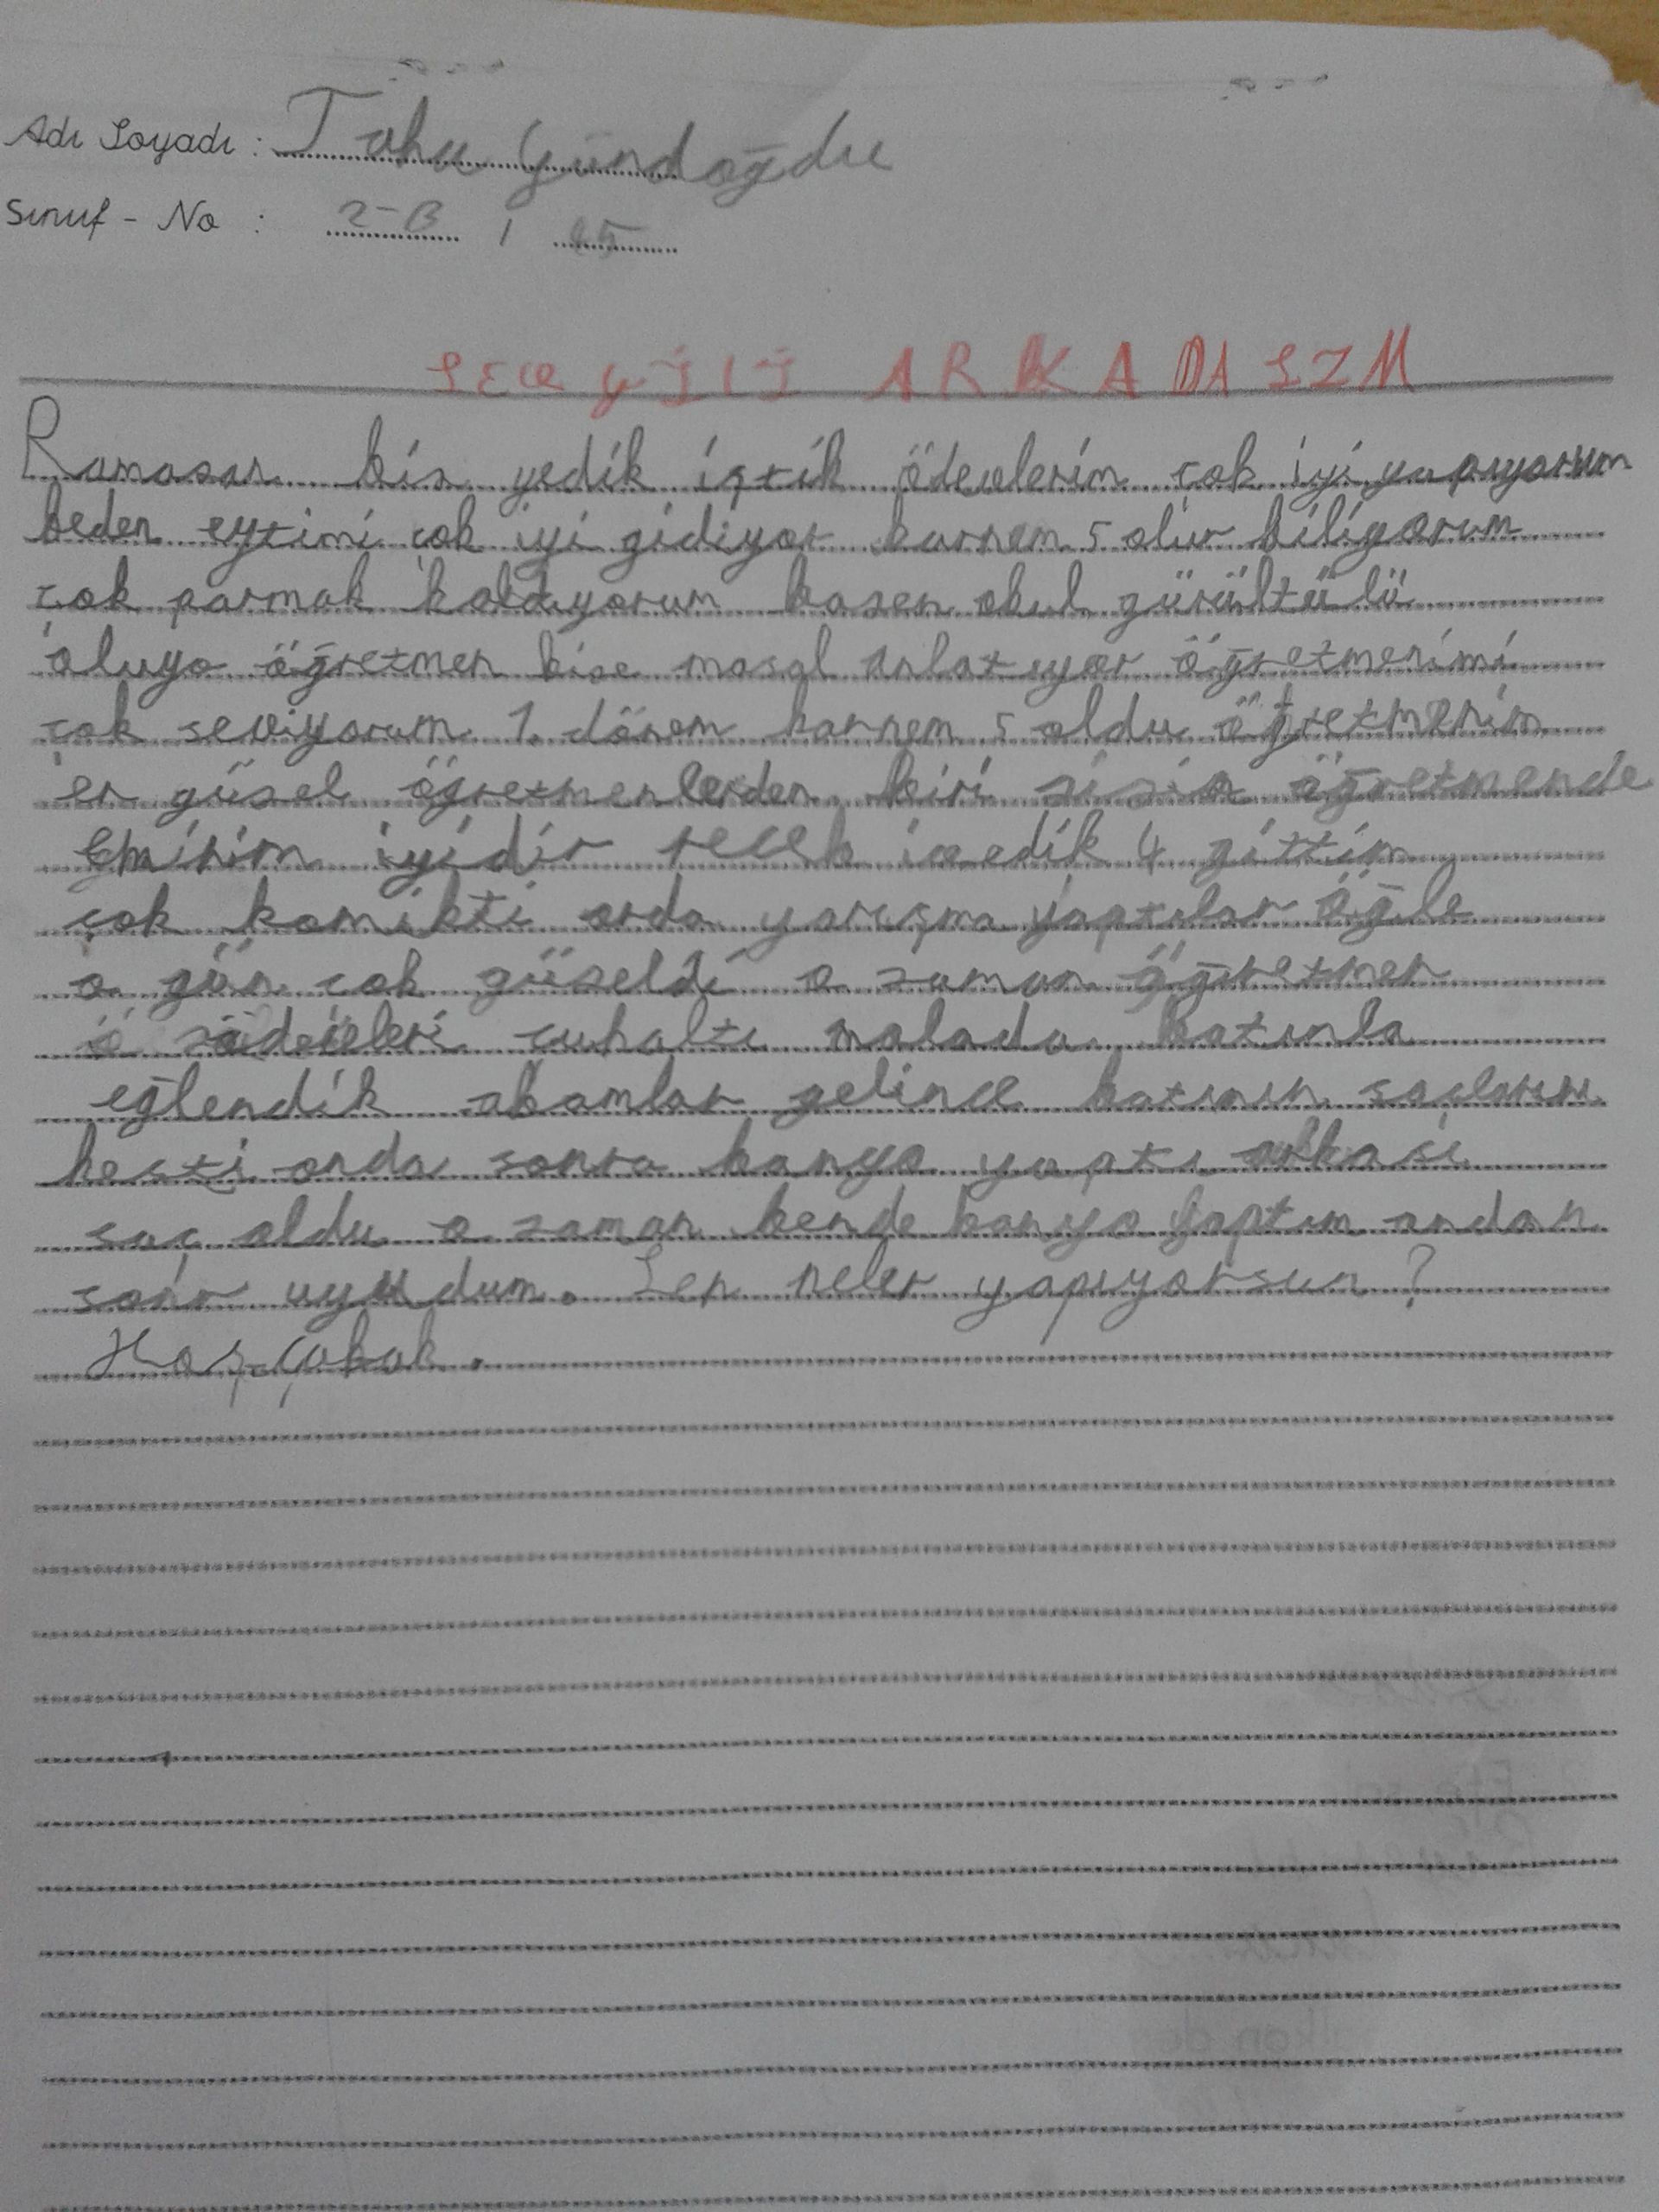 Adı Soyadı : Taha Gündoğdu
Sınıf - No : 2-B / 85
SEVGİLİ ARKADASIM
Ramasan bis yedik iştik ödevlerim çok iyi yapıyorum
beden eytimi çok iyi gidiyor karnem 5 olur biliyorum
çok parmak kaldıyorum basen okul gürültülü
oluyo öğretmen bise masal anlatıyor öğretmenimi
çok seviyorum 1. dönem karnem 5 oldu öğretmenim
en güsel öğretmenlerden biri sizin öğretmende
Eminim iyidir recep 4 gittim
çok komikti orda yarışma yaptılar öğle
o gün çok güseldi o zaman öğretmen
malada batınla
eğlendik akamlar gelince batının saçlarını
kesti onda sonra banyo yaptı
saç oldu o zaman bende banyo yaptım ondan
sonr uyudum. Sen neler yapıyorsun ?
Hoş çakak.